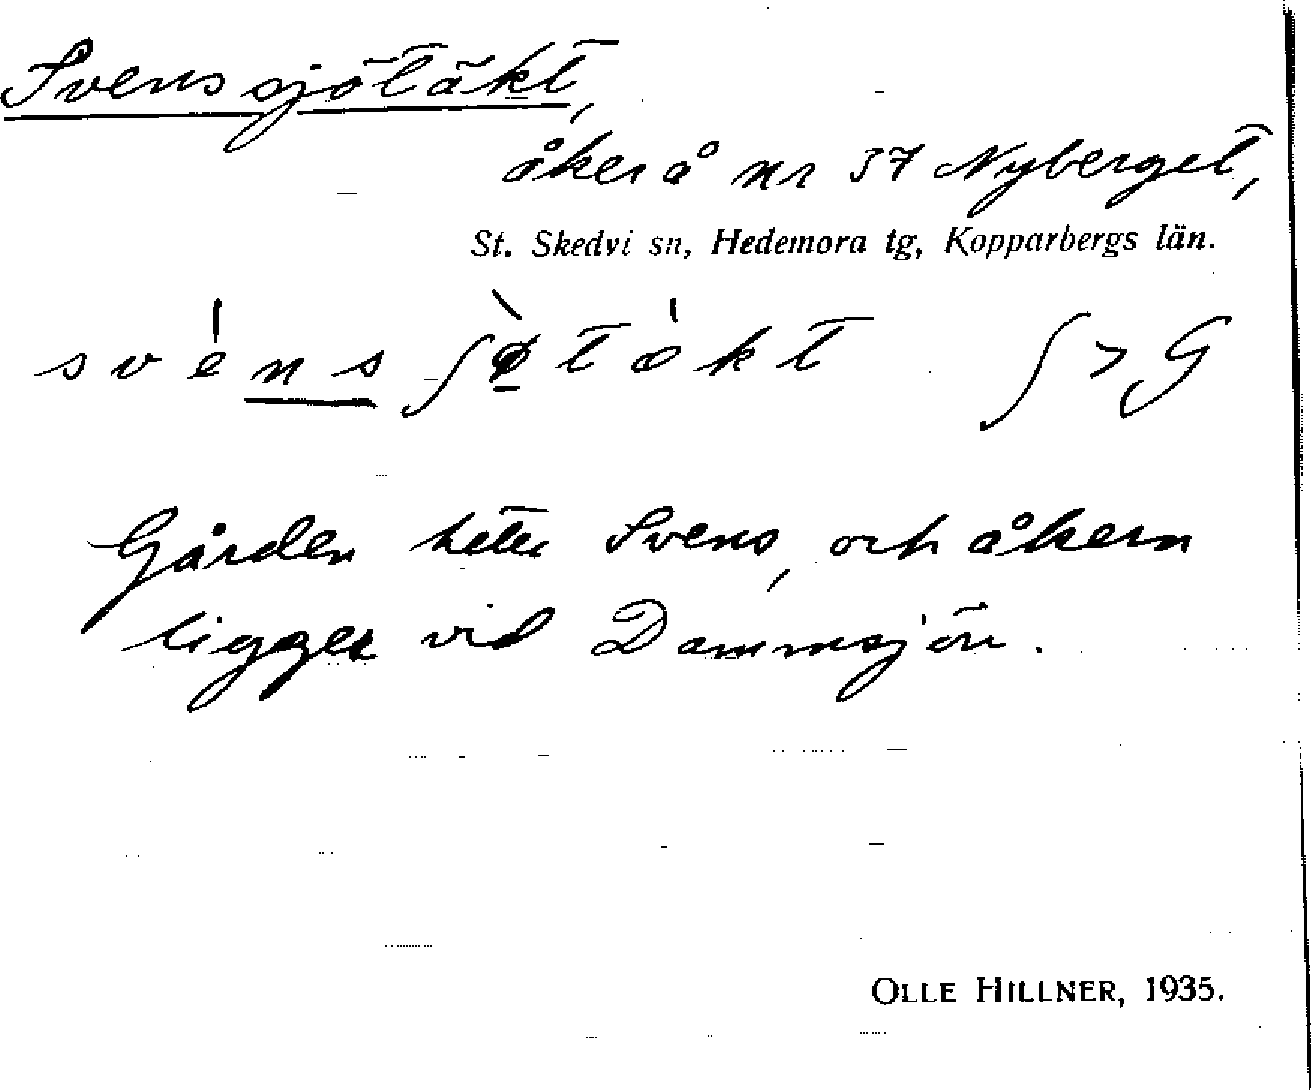 Svenssjötäkt,
åker å nr 37 Nyberget,
St. Skedvi sn, Hedemora tg, Kopparbergs län.
svens ʃøtäkt ʃ > G
Gården heter Svens, och åkern
ligger vid Dammsjön.
OLLE HILLNER, 1935.